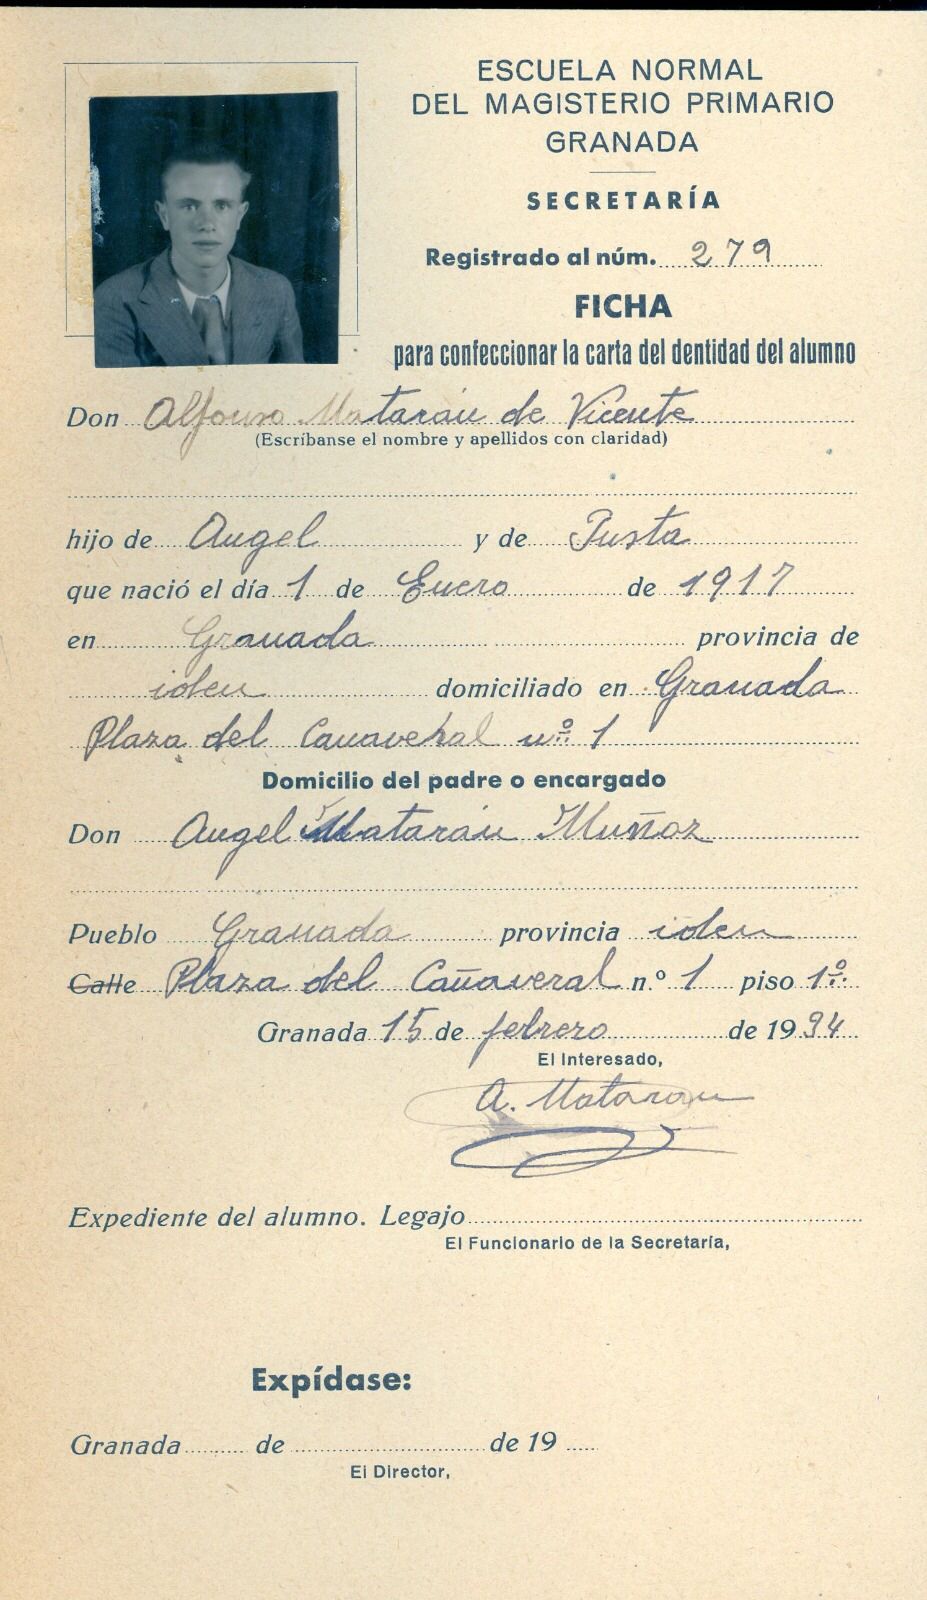 ESCUELA NORMAL
DEL MAGISTERIO PRIMARIO
GRANADA
SECRETARÍA
Registrado al núm. 279
FICHA
para confeccionar la carta del dentidad del alumno
Don Alfonso Matarán de Vicente
(Escríbanse el nombre y apellidos con claridad)
hijo de Angel y de Justa
que nació el día 1 de Enero de 1917
en Granada provincia de
iden domiciliado en Granada
Plaza del Cañaveral nº 1
Domicilio del padre o encargado
Don Angel Matarán Muñoz
Pueblo Granada provincia iden
Calle Plaza del Cañaveral n.º 1 piso 1º
Granada 15 de febrero de 1934
El Interesado,
A. Mataran
Expediente del alumno. Legajo
El Funcionario de la Secretaría,
Expídase:
Granada de de 19
El Director,